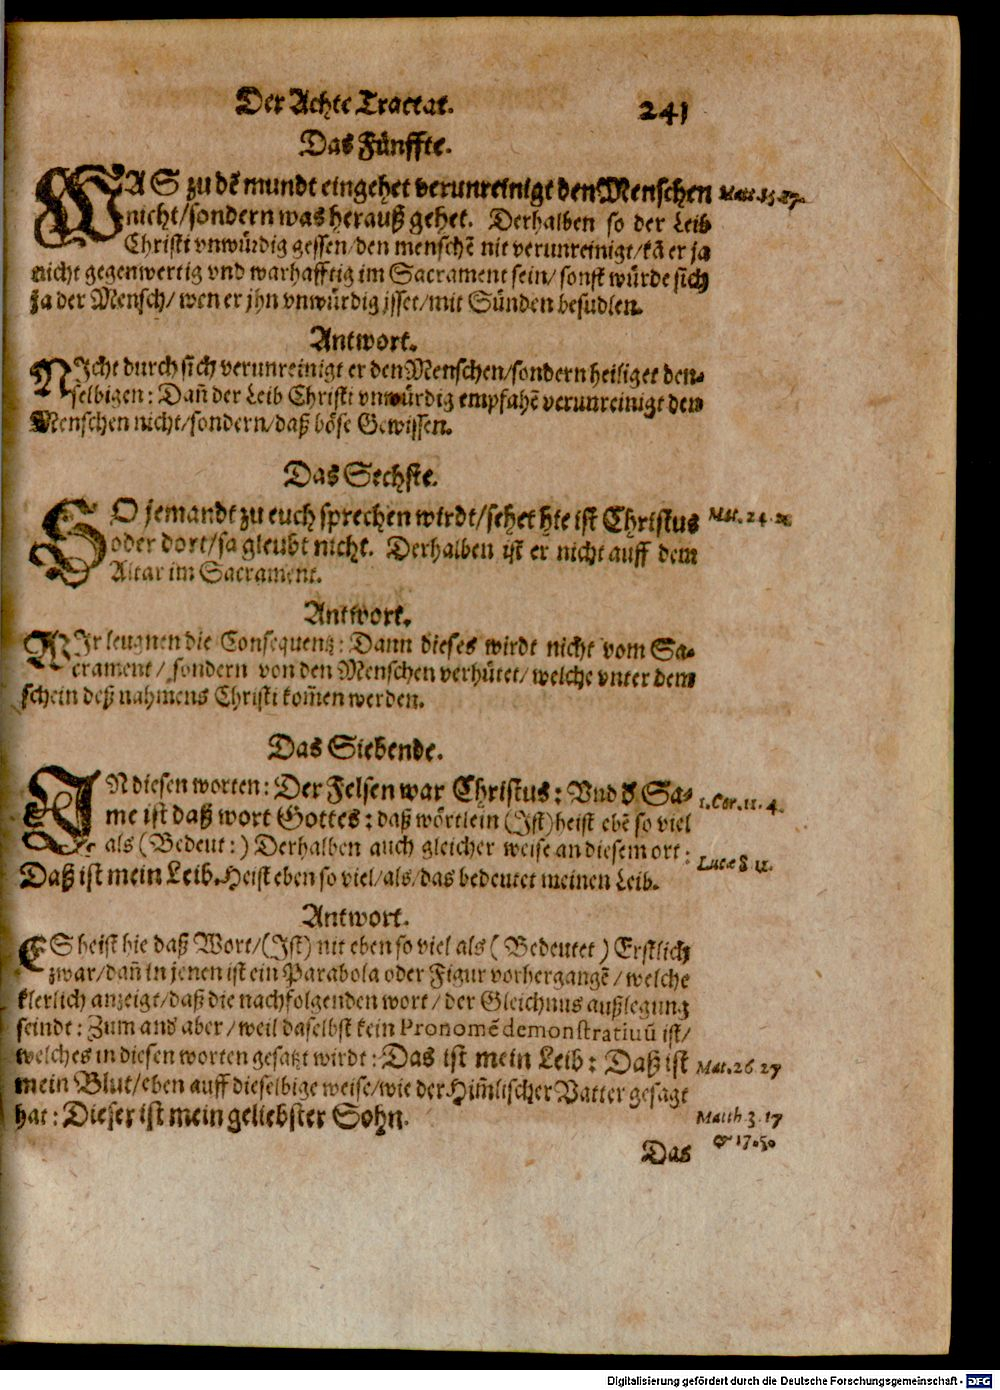 Der Achte Tractat. 241
Das Fünffte.
WAS zu dẽ mundt eingehet verunreinigt den Menschen
nicht/sondern was herauß gehet. Derhalben so der Leib
Christi vnwürdig gessen/den menschẽ nit verunreinigt/kã er ja
nicht gegenwertig vnd warhafftig im Sacrament sein/sonst würde sich
ja der Mensch/wen er jhn vnwürdig jsset/mit Sünden besudlen.
Antwort.
NIcht durch sich verunreinigt er den Menschen/sondern heiliget den-
selbigen: Dañ der Leib Christi vnwürdig empfahẽ verunreinigt den
Menschen nicht/sondern/daß böse Gewissen.
Das Sechste.
SO jemandt zu euch sprechen wirdt/sehet hie ist Christus
Mat. 24.
oder dort/sa gleubt nicht. Derhalben ist er nicht auff dem
Altar im Sacrament.
Antwort.
WIr leugnen die Consequentz: Dann dieses wirdt nicht vom Sa-
crament/sondern von den Menschen verhütet/welche vnter dem
schein deß nahmens Christi kom̃en werden.
Das Siebende.
IN diesen worten: Der Felsen war Christus: Vnd d Sa-
1. Cor. 11. 4.
me ist daß wort Gottes: daß wörtlein (Ist) heist ebẽ so viel
als (Bedeut:) Derhalben auch gleicher weise an diesem ort:
Lucæ 8 11.
Daß ist mein Leib. Heist eben so viel/als/das bedeutet meinen Leib.
Antwort.
ES heist hie daß Wort/(Ist) nit eben so viel als (Bedeutet) Erstlich
zwar/dañ in jenen ist ein Parabola oder Figur vorhergangẽ/welche
klerlich anzeigt/daß die nachfolgenden wort/der Gleichnus außlegung
seindt: Zum and aber/weil daselbst kein Pronomẽ demonstratiuũ ist/
welches in diesen worten gesatzt wirdt: Das ist mein Leib: Daß ist
Mat. 26 27
mein Blut/eben auff dieselbige weise/wie der Him̃lischer Vatter gesagt
hat: Dieser ist mein geliebster Sohn.
Matth 3. 17
& 17. 5.
Das
Digitalisierung gefördert durch die Deutsche Forschungsgemeinschaft - DFG